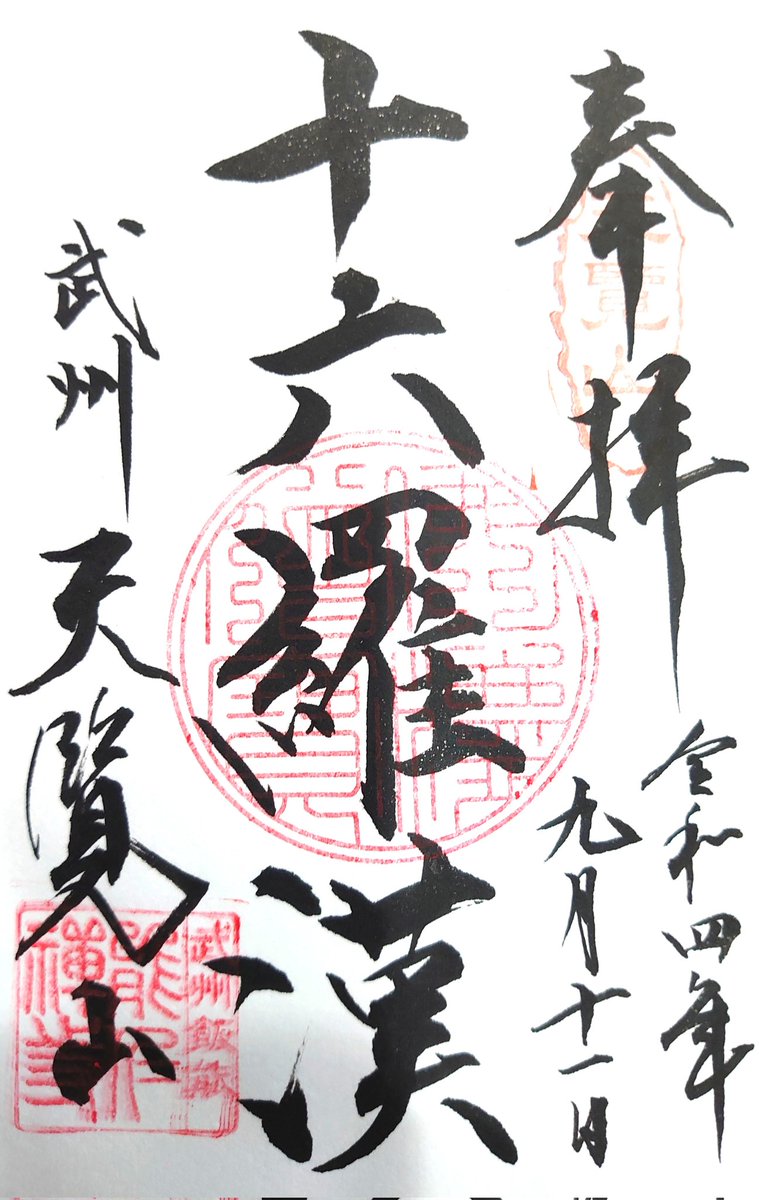 奉拝
令和四年
九月十一日
十六羅漢
武州
天覧山
武州飯能